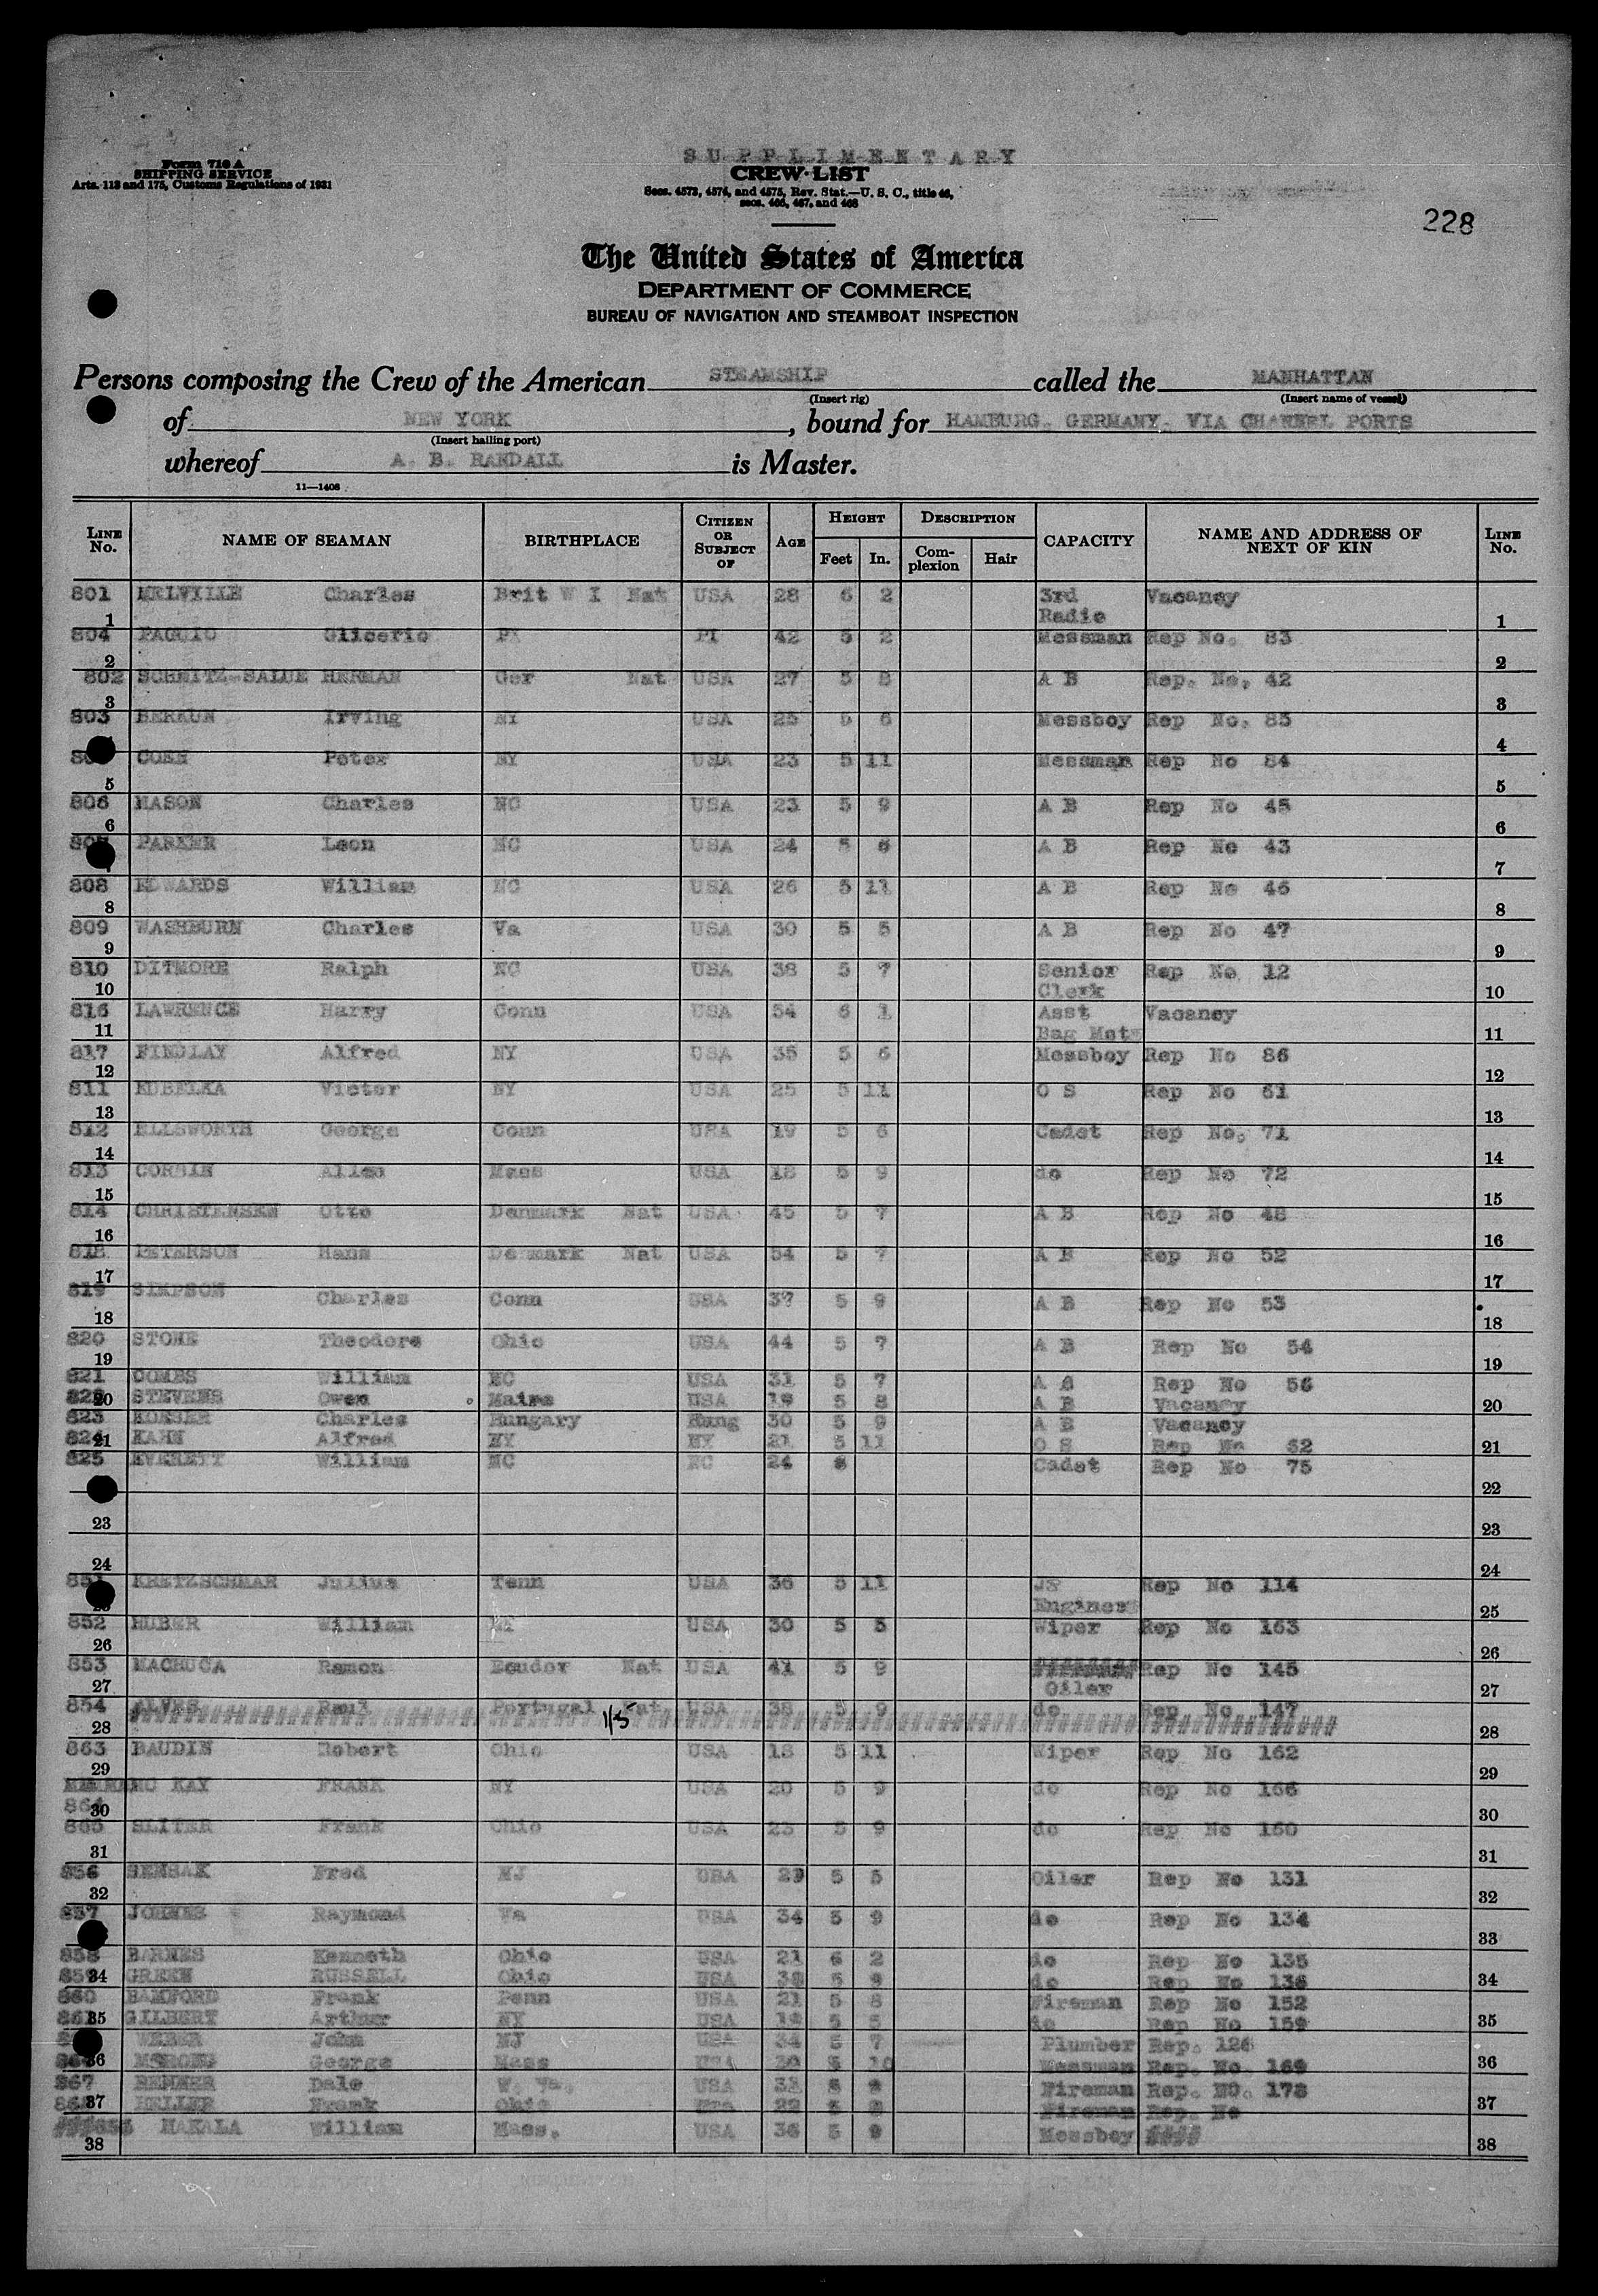 Form 710 A
SHIPPING SERVICE
Arts. 113 and 175, Customs Regulations of 1931
SUPPLIMENTARY
CREW LIST
Secs. 4573, 4574, and 4575, Rev. Stat.—U. S. C., title 46,
secs. 466, 467, and 468
228
The United States of America
DEPARTMENT OF COMMERCE
BUREAU OF NAVIGATION AND STEAMBOAT INSPECTION
Persons composing the Crew of the American STEAMSHIP called the MANHATTAN
(Insert rig) (Insert name of vessel)
of NEW YORK, bound for HAMBURG, GERMANY, VIA CHANNEL PORTS
(Insert hailing port)
whereof A. B. RANDALL is Master.
11—1408
LINE No. NAME OF SEAMAN BIRTHPLACE CITIZEN OR SUBJECT OF AGE HEIGHT Feet In. DESCRIPTION Complexion Hair CAPACITY NAME AND ADDRESS OF NEXT OF KIN LINE No.
801 MELVILLE Charles Brit W I Nat USA 28 6 2 3rd Vacancy
1 Radio 1
804 Glicerio PI 42 5 2 Messman Rep No. 83
2 2
802 SCHMITZ-SALUE HERMAN Ger Nat USA 27 5 8 A B Rep. No. 42
3 3
803 Irving NY USA 25 5 6 Messboy Rep No. 85
4
COHN Peter NY USA 23 5 11 Messman Rep No 84
5 5
806 MASON Charles NC USA 23 5 9 A B Rep No 45
6 6
PARKER Leon NC USA 24 5 6 A B Rep No 43
7
808 EDWARDS William NC USA 26 5 11 A B Rep No 46
8 8
809 WASHBURN Charles Va USA 30 5 5 A B Rep No 47
9 9
810 DITMORE Ralph NC USA 38 5 7 Senior Rep No 12
10 Clerk 10
816 LAWRENCE Harry Conn USA 54 6 1 Asst Vacancy
11 Bag Mstr 11
817 FINDLAY Alfred NY USA 35 5 6 Messboy Rep No 86
12 12
811 KUBELKA Victor NY USA 25 5 11 O S Rep No 61
13 13
812 ELLSWORTH George Conn USA 19 5 6 Cadet Rep No. 71
14 14
813 CORBIN Allen Mass USA 18 5 9 do Rep No 72
15 15
814 CHRISTENSEN Otto Denmark Nat USA 45 5 7 A B Rep No 48
16 16
818 PETERSON Hans De mark Nat USA 54 5 7 A B Rep No 52
17 17
819 SIMPSON Charles Conn USA 37 5 9 A B Rep No 53
18 18
820 STONE Theodore Ohio USA 44 5 7 A B Rep No 54
19 19
821 COMBS William NC USA 31 5 7 A Rep No 56
822 STEVENS Owen Maine USA 19 5 8 A B Vacancy
20 20
823 Charles Hungary Hung 30 5 9 A B Vacancy
824 KAHN Alfred NY NY 21 5 11 O S Rep No 62
21 21
825 EVERETT William NC NC 24 Cadet Rep No 75
22
23 23
24 24
851 KRETZSCHMAR Julius Tenn USA 36 5 11 Jr Rep No 114
Engineer 25
852 HUBER William USA 30 5 5 Wiper Rep No 163
26 26
853 MACHUCA Ramon Ecudor Nat USA 41 5 9 Rep No 145
27 Oiler 27
854 ALVES Raul Portugal Nat USA 38 5 9 do Rep No 147
28 28
863 BAUDIN Robert Ohio USA 18 5 11 Wiper Rep No 162
29 29
MC KAY FRANK NY USA 20 5 9 do Rep No 166
864
30 30
865 SLITER Frank Ohio USA 23 5 9 do Rep No 160
31 31
856 SEMSAK Fred NJ USA 29 5 5 Oiler Rep No 131
32 32
857 Raymond Va USA 34 5 9 do Rep No 134
33
858 BARNES Kenneth Ohio USA 21 6 2 do Rep No 135
859 GREEN RUSSELL Ohio USA 5 9 do Rep No 136
34 34
860 BAMFORD Frank Penn USA 21 5 8 Fireman Rep No 152
861 GILBERT Arthur NY USA 19 5 5 do Rep No 159
35 35
WEBER John NJ USA 34 5 7 Plumber Rep. 126
George Mass USA 5 10 Messman Rep. No. 169
36 36
867 RENNER Dale W. Va. USA 5 Fireman Rep. NO. 178
HELLER Frank Ohio USA 22 5 Fireman Rep. No
37 37
HAKALA William Mass. USA 36 5 9 Messboy
38 38